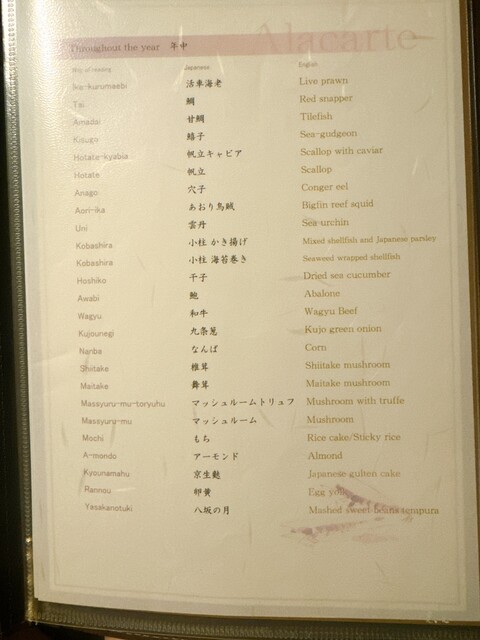 Alacarte
Throughout the year 年中
Way of reading Japanese English
Ike-kurumaebi 活車海老 Live prawn
Tai 鯛 Red snapper
Amadai 甘鯛 Tilefish
Kisugo 鱚子 Sea-gudgeon
Hotate-kyabia 帆立キャビア Scallop with caviar
Hotate 帆立 Scallop
Anago 穴子 Conger eel
Aori-ika あおり烏賊 Bigfin reef squid
Uni 雲丹 Sea urchin
Kobashira 小柱 かき揚げ Mixed shellfish and Japanese parsley
Kobashira 小柱 海苔巻き Seaweed wrapped shellfish
Hoshiko 干子 Dried sea cucumber
Awabi 鮑 Abalone
Wagyu 和牛 Wagyu Beef
Kujounegi 九条葱 Kujo green onion
Nanba なんば Corn
Shiitake 椎茸 Shiitake mushroom
Maitake 舞茸 Maitake mushroom
Massyuru-mu-toryuhu マッシュルームトリュフ Mushroom with truffe
Massyuru-mu マッシュルーム Mushroom
Mochi もち Rice cake/Sticky rice
A-mondo アーモンド Almond
Kyounamahu 京生麩 Japanese gulten cake
Rannou 卵黄 Egg yolk
Yasakanotuki 八坂の月 Mashed sweet beans tempura